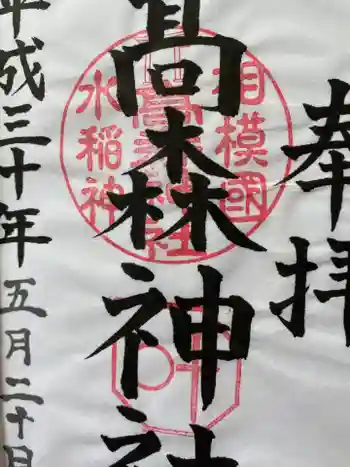 奉拝
高森神社
相模國
高森神社
水稲神
平成三十年五月二十日